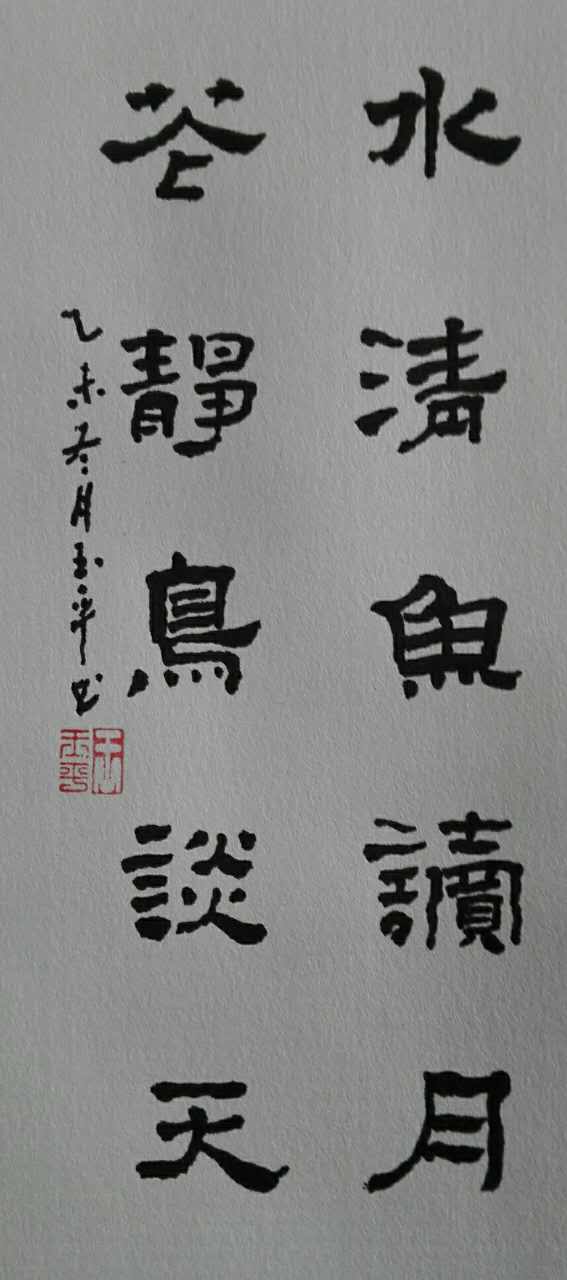 水清魚讀月
花靜鳥談天
乙未冬月玉平书